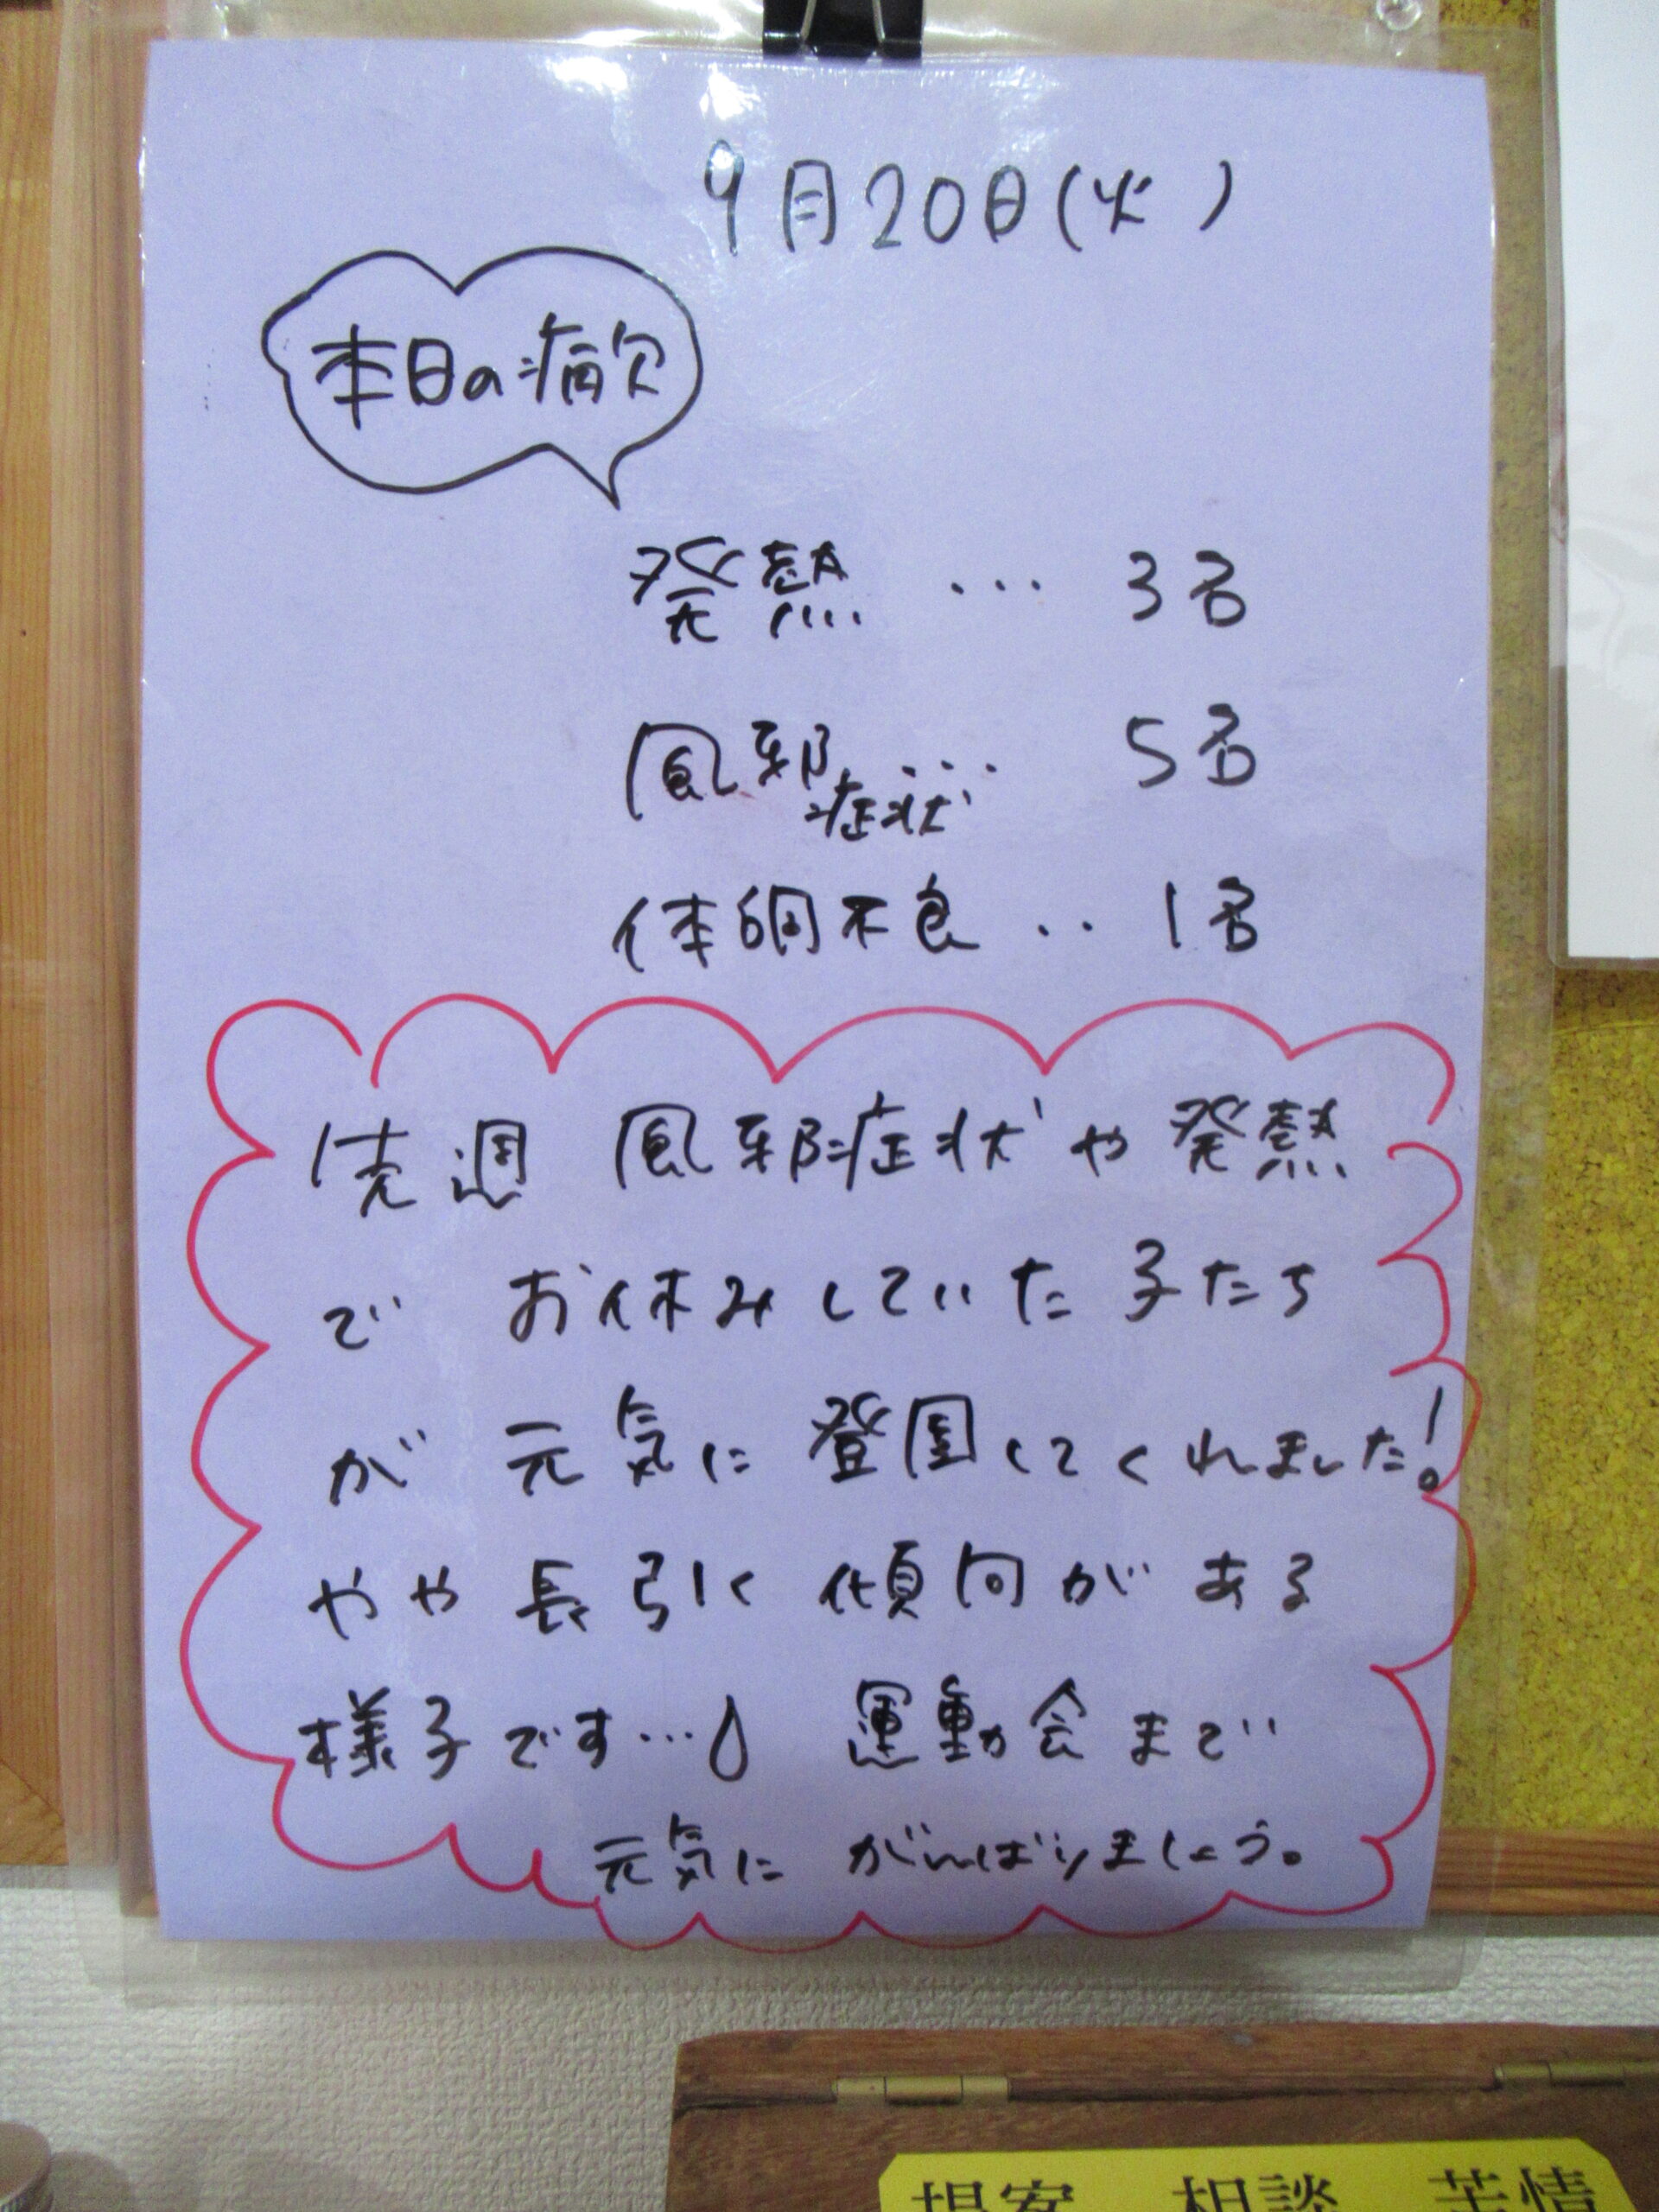 9月20日(火)
本日の病欠
発熱 ... 3名
風邪症状 ... 5名
体調不良 .. 1名
先週 風邪症状や発熱
で お休みしていた子たち
が 元気に 登園してくれました!
やや 長引く 傾向が ある
様子です… 運動会まで
元気に がんばりましょう。
提案 相談 苦情